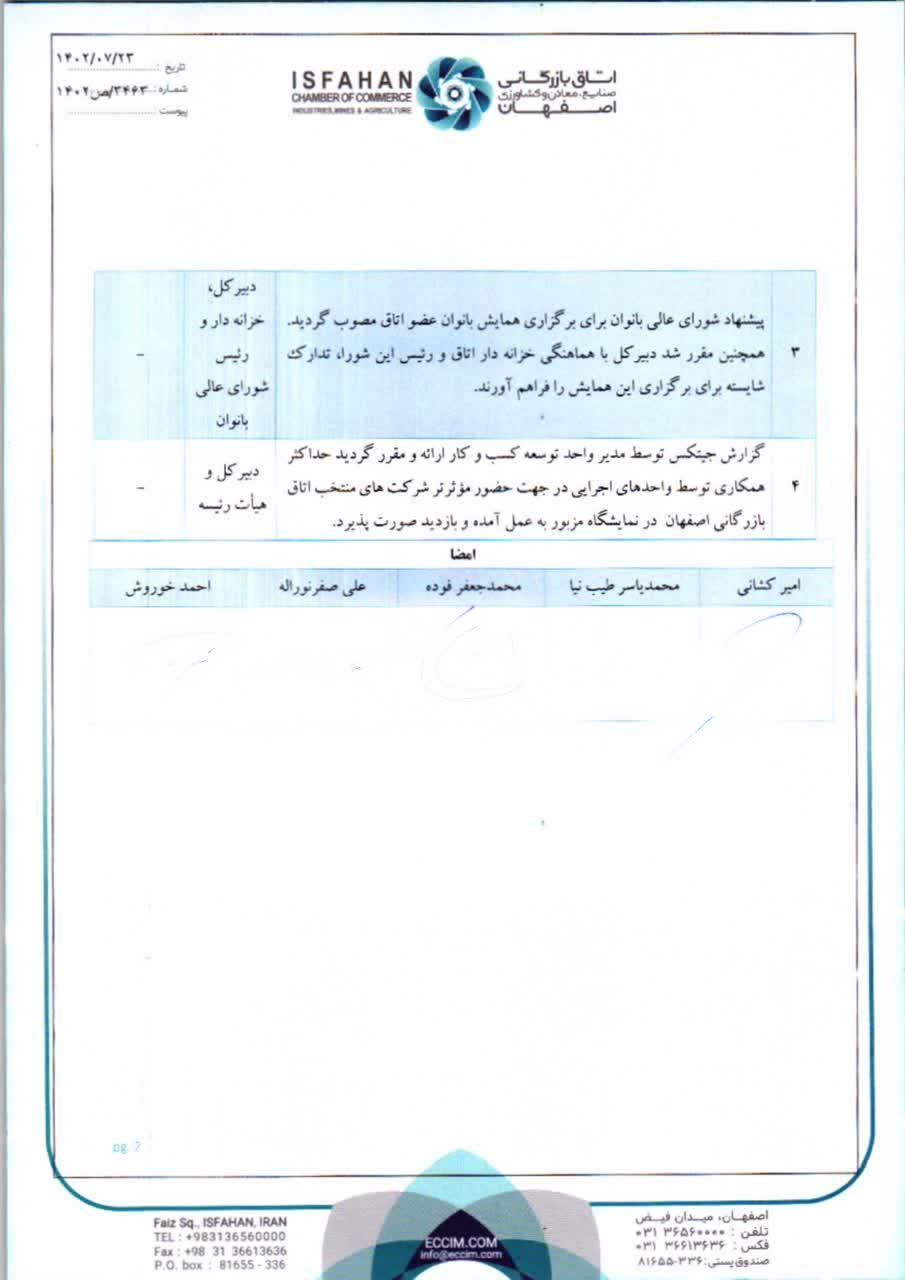 تاریخ : ۱۴۰۲/۰۷/۲۳
شماره : ۳۴۶۳/ص/۱۴۰۲
پیوست
ISFAHAN
CHAMBER OF COMMERCE
INDUSTRIES, MINES & AGRICULTURE
اتاق بازرگانی
صنایع، معادن و کشاورزی
اصفهان
۳
پیشنهاد شورای عالی بانوان برای برگزاری همایش بانوان عضو اتاق مصوب گردید.
همچنین مقرر شد دبیرکل با هماهنگی خزانه دار اتاق و رئیس این شورا، تدارک
شایسته برای برگزاری این همایش را فراهم آورند.
دبیرکل،
خزانه دار و
رئیس
شورای عالی
بانوان
-
۴
گزارش جیتکس توسط مدیر واحد توسعه کسب و کار ارائه و مقرر گردید حداکثر
همکاری توسط واحدهای اجرایی در جهت حضور مؤثرتر شرکت های منتخب اتاق
بازرگانی اصفهان در نمایشگاه مزبور به عمل آمده و بازدید صورت پذیرد.
دبیرکل و
هیأت رئیسه
-
امضا
امیر کشانی محمدیاسر طیب نیا محمدجعفر فوده علی صفرنوراله احمد خوروش
pg. 2
Faiz Sq., ISFAHAN, IRAN
TEL : +983136560000
Fax : +98 31 36613636
P.O. box : 81655 - 336
ECCIM.COM
info@eccim.com
اصفهان، میدان فیض
تلفن : ۳۶۵۶۰۰۰۰ ۰۳۱
فکس : ۳۶۶۱۳۶۳۶ ۰۳۱
صندوق پستی: ۳۳۶-۸۱۶۵۵